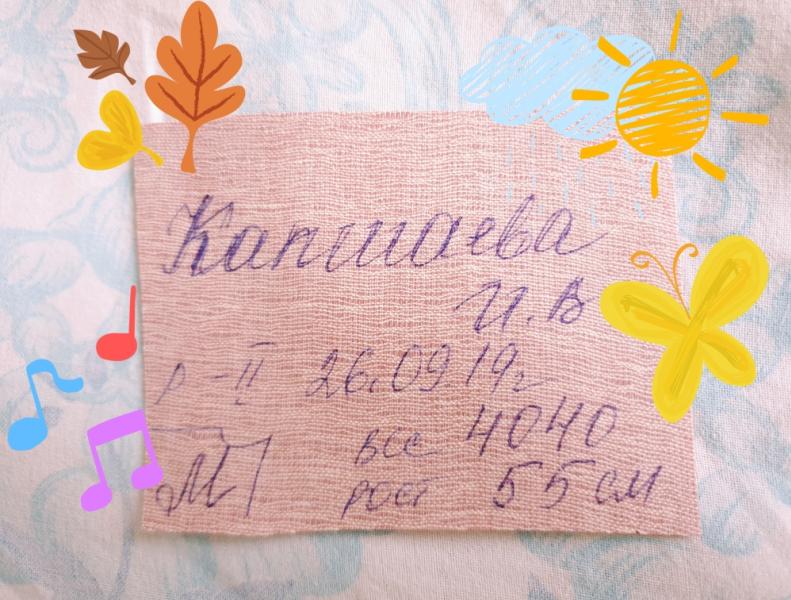 Капшаева
И. В
р-II 26.09 19г
все 4040
М рост 55 см